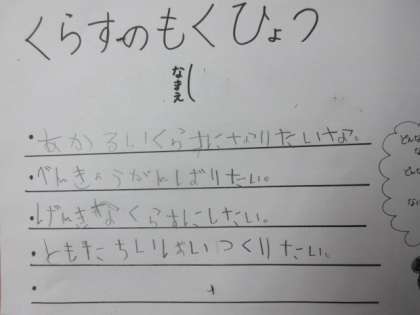 くらすのもくひょう
なまえ
・あかるいくらすになりたいな。
・べんきょうがんばりたい。
・げんきなくらすにしたい。
・ともだちいっぱいつくりたい。
・
どんな
な
どん
ない